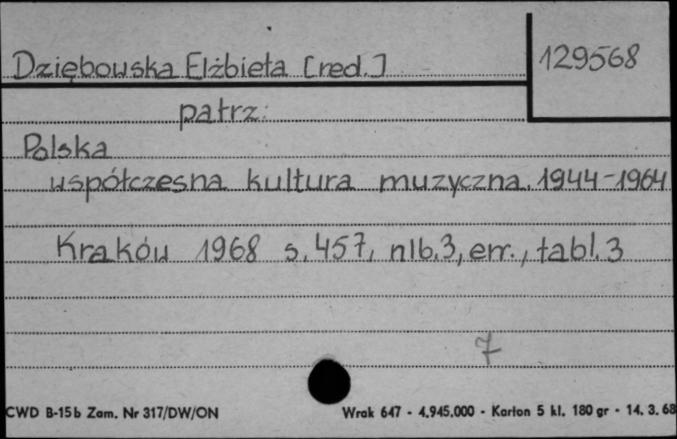 Dziębowska Elżbieta [red.] 129568
patrz:
Polska
współczesna kultura muzyczna. 1944-1964
Kraków 1968 s. 457, nlb. 3, err., tabl. 3
7
CWD B-15b Zam. Nr 317/DW/ON Wrak 647 - 4.945.000 - Karton 5 kl. 180 gr - 14. 3. 68